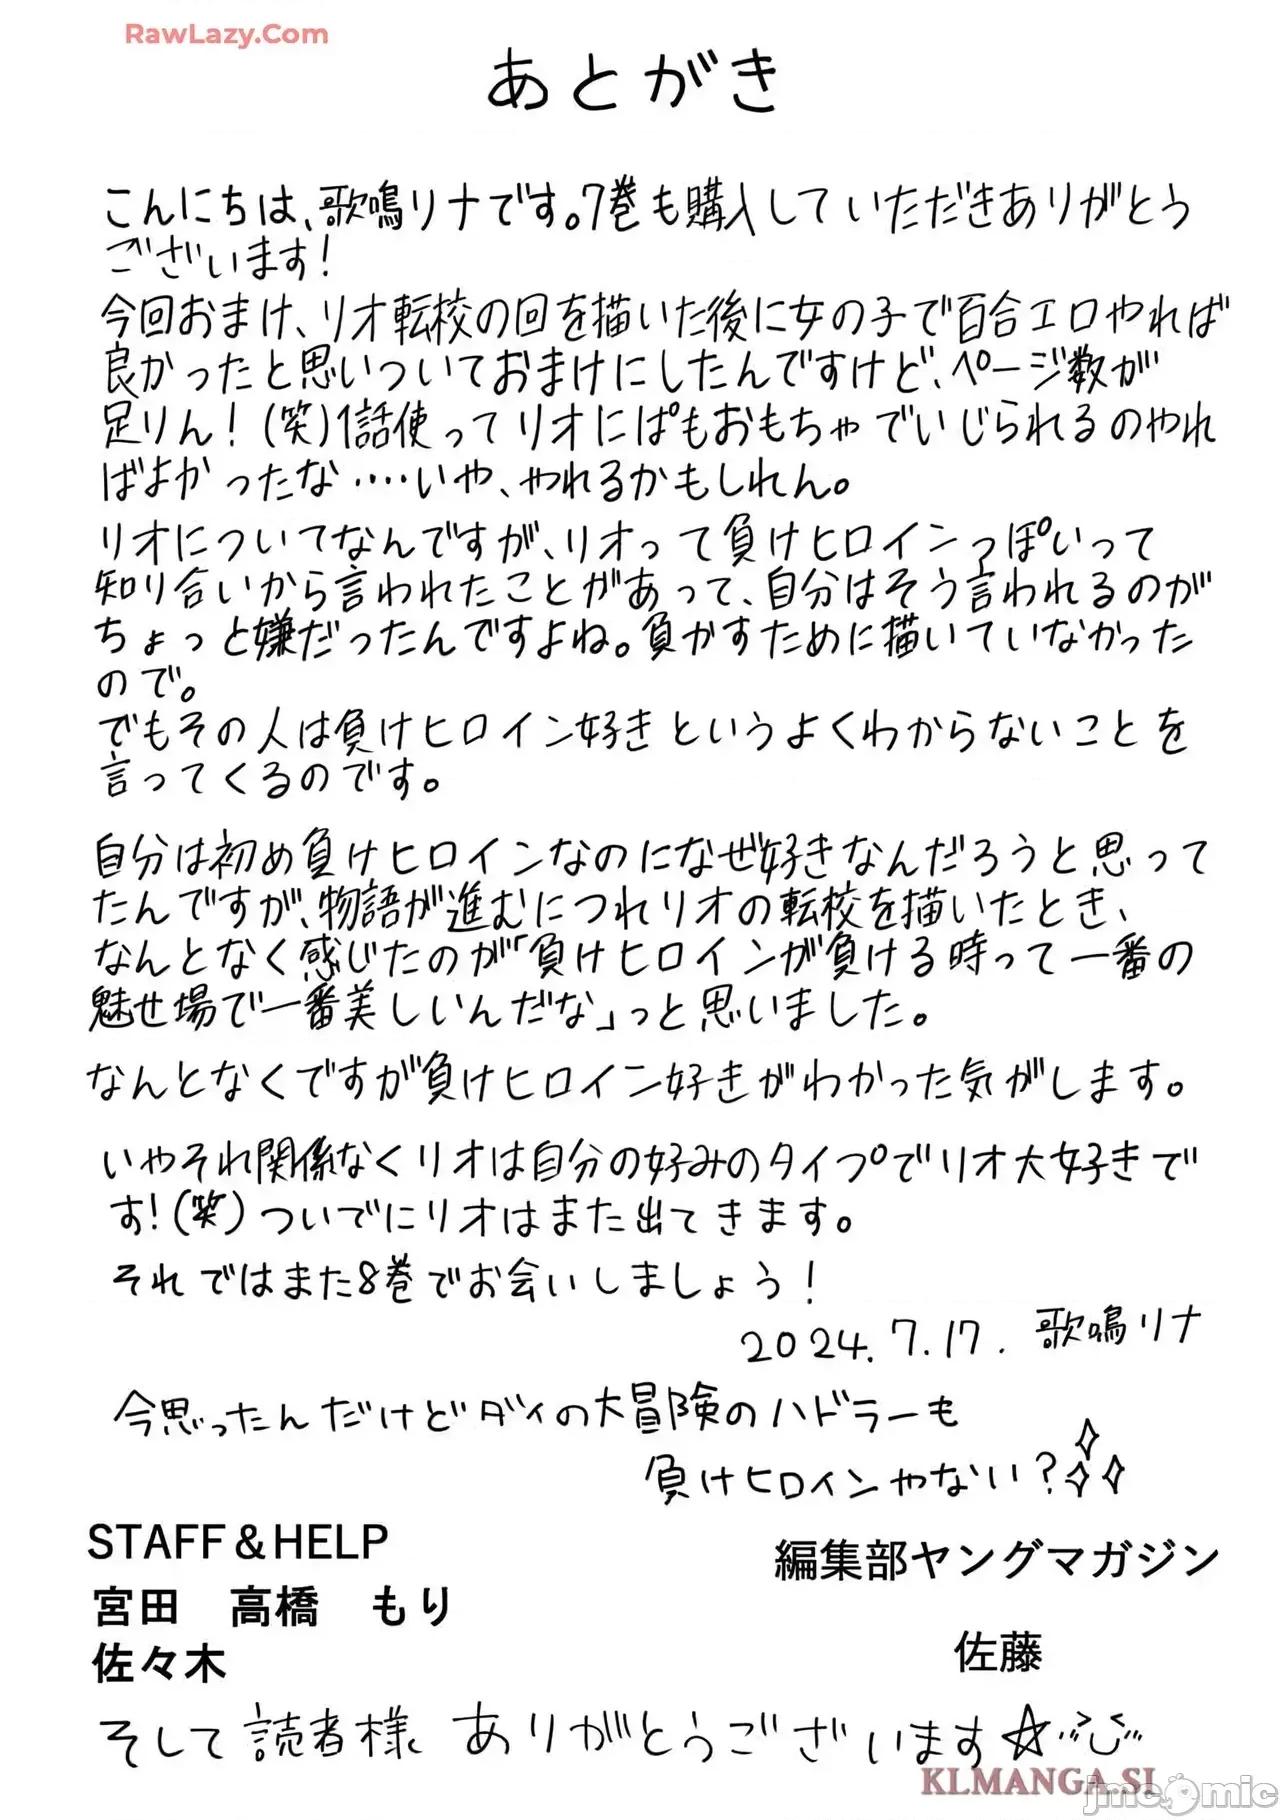 RawLazy.Com
あとがき
こんにちは、歌鳴リナです。7巻も購入していただきありがとう
ございます!
今回おまけ、リオ転校の回を描いた後に女の子で百合エロやれば
良かったと思いついておまけにしたんですけど、ページ数が
足りん!(笑)1話使ってリオにぱもおもちゃでいじられるのやれ
ばよかったな‥‥いや、やれるかもしれん。
リオについてなんですが、リオって負けヒロインっぽいって
知り合いから言われたことがあって、自分はそう言われるのが
ちょっと嫌だったんですよね。負かすために描いていなかった
ので。
でもその人は負けヒロイン好きというよくわからないことを
言ってくるのです。
自分は初め負けヒロインなのになぜ好きなんだろうと思って
たんですが、物語が進むにつれリオの転校を描いたとき、
なんとなく感じたのが「負けヒロインが負ける時って一番の
魅せ場で一番美しいんだな」っと思いました。
なんとなくですが負けヒロイン好きがわかった気がします。
いやそれ関係なくリオは自分の好みのタイプでリオ大好きで
す!(笑)ついでにリオはまた出てきます。
それではまた8巻でお会いしましょう!
2024.7.17. 歌鳴リナ
今思ったんだけどダイの大冒険のハドラーも
負けヒロインやない?
STAFF&HELP
編集部ヤングマガジン
宮田 高橋 もり
佐々木
佐藤
そして読者様 ありがとうございます☆
KLMANGA.SI
jmcomic